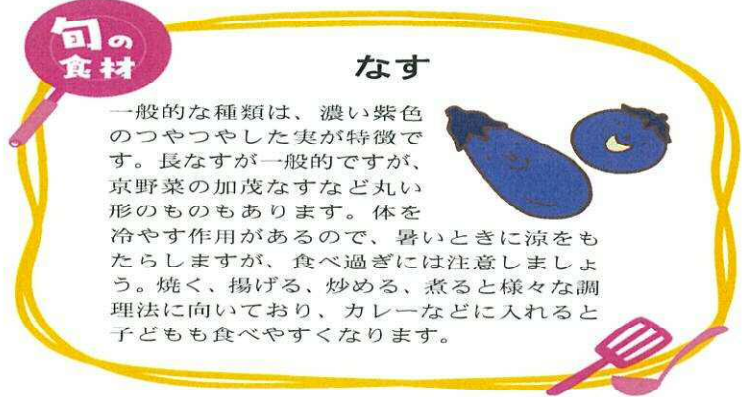 旬の
食材
なす
一般的な種類は、濃い紫色
のつやつやした実が特徴で
す。長なすが一般的ですが、
京野菜の加茂なすなど丸い
形のものもあります。体を
冷やす作用があるので、暑いときに涼をも
たらしますが、食べ過ぎには注意しましょ
う。焼く、揚げる、炒める、煮ると様々な調
理法に向いており、カレーなどに入れると
子どもも食べやすくなります。